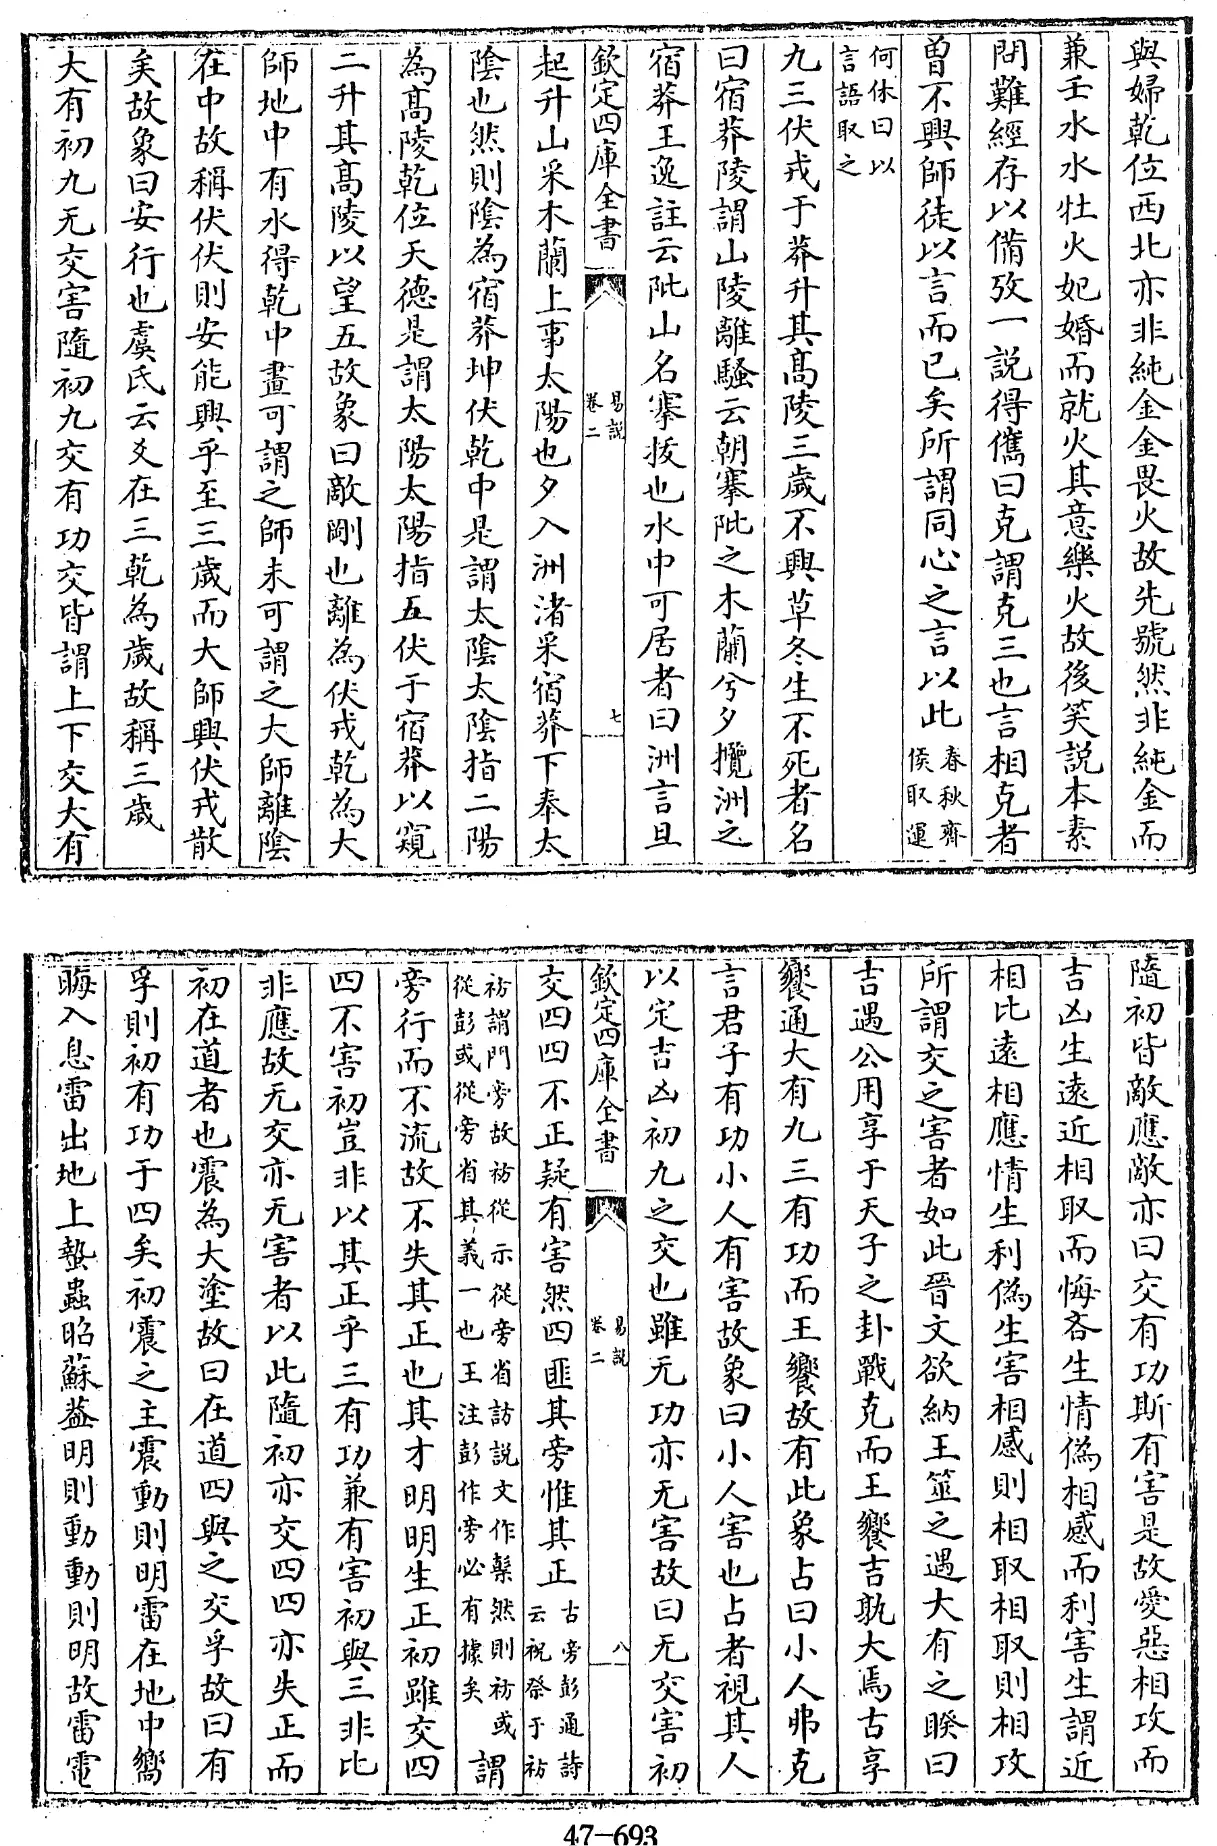 與婦乾位西北亦非純金金畏火故先號然非純金而
兼壬水水牡火妃婚而就火其意樂火故後笑說本素
問難經存以備攷一說得儁曰克謂克三也言相克者
曾不興師徒以言而已矣所謂同心之言以此春秋齊
侯取運
何休曰以
言語取之
九三伏戎于莽升其髙陵三歲不興草冬生不死者名
曰宿莽陵謂山陵離騷云朝搴阰之木蘭兮夕攬洲之
宿莽王逸註云阰山名搴拔也水中可居者曰洲言旦
欽定四庫全書
易說
卷二
七
起升山采木蘭上事太陽也夕入洲渚采宿莽下奉太
陰也然則陰為宿莽坤伏乾中是謂太陰太陰指二陽
為髙陵乾位天德是謂太陽太陽指五伏于宿莽以窺
二升其髙陵以望五故象曰敵剛也離為伏戎乾為大
師地中有水得乾中畫可謂之師未可謂之大師離陰
在中故稱伏伏則安能興乎至三歲而大師興伏戎散
矣故象曰安行也虞氏云爻在三乾為歲故稱三歲
大有初九无交害隨初九交有功交皆謂上下交大有
隨初皆敵應敵亦曰交有功斯有害是故愛惡相攻而
吉凶生遠近相取而悔吝生情偽相感而利害生謂近
相比遠相應情生利偽生害相感則相取相取則相攻
所謂交之害者如此晉文欲納王筮之遇大有之睽曰
吉遇公用享于天子之卦戰克而王饗吉孰大焉古享
饗通大有九三有功而王饗故有此象占曰小人弗克
言君子有功小人有害故象曰小人害也占者視其人
以定吉凶初九之交也雖无功亦无害故曰无交害初
欽定四庫全書
易說
卷二
八
交四四不正疑有害然四匪其旁惟其正古旁彭通詩
云祝祭于祊
祊謂門旁故祊從示從旁省訪說文作髼然則祊或
從彭或從旁省其義一也王注彭作旁必有據矣謂
旁行而不流故不失其正也其才明明生正初雖交四
四不害初豈非以其正乎三有功兼有害初與三非比
非應故无交亦无害者以此隨初亦交四四亦失正而
初在道者也震為大塗故曰在道四與之交孚故曰有
孚則初有功于四矣初震之主震動則明雷在地中嚮
晦入息雷出地上蟄蟲昭蘇益明則動動則明故雷電
47-693